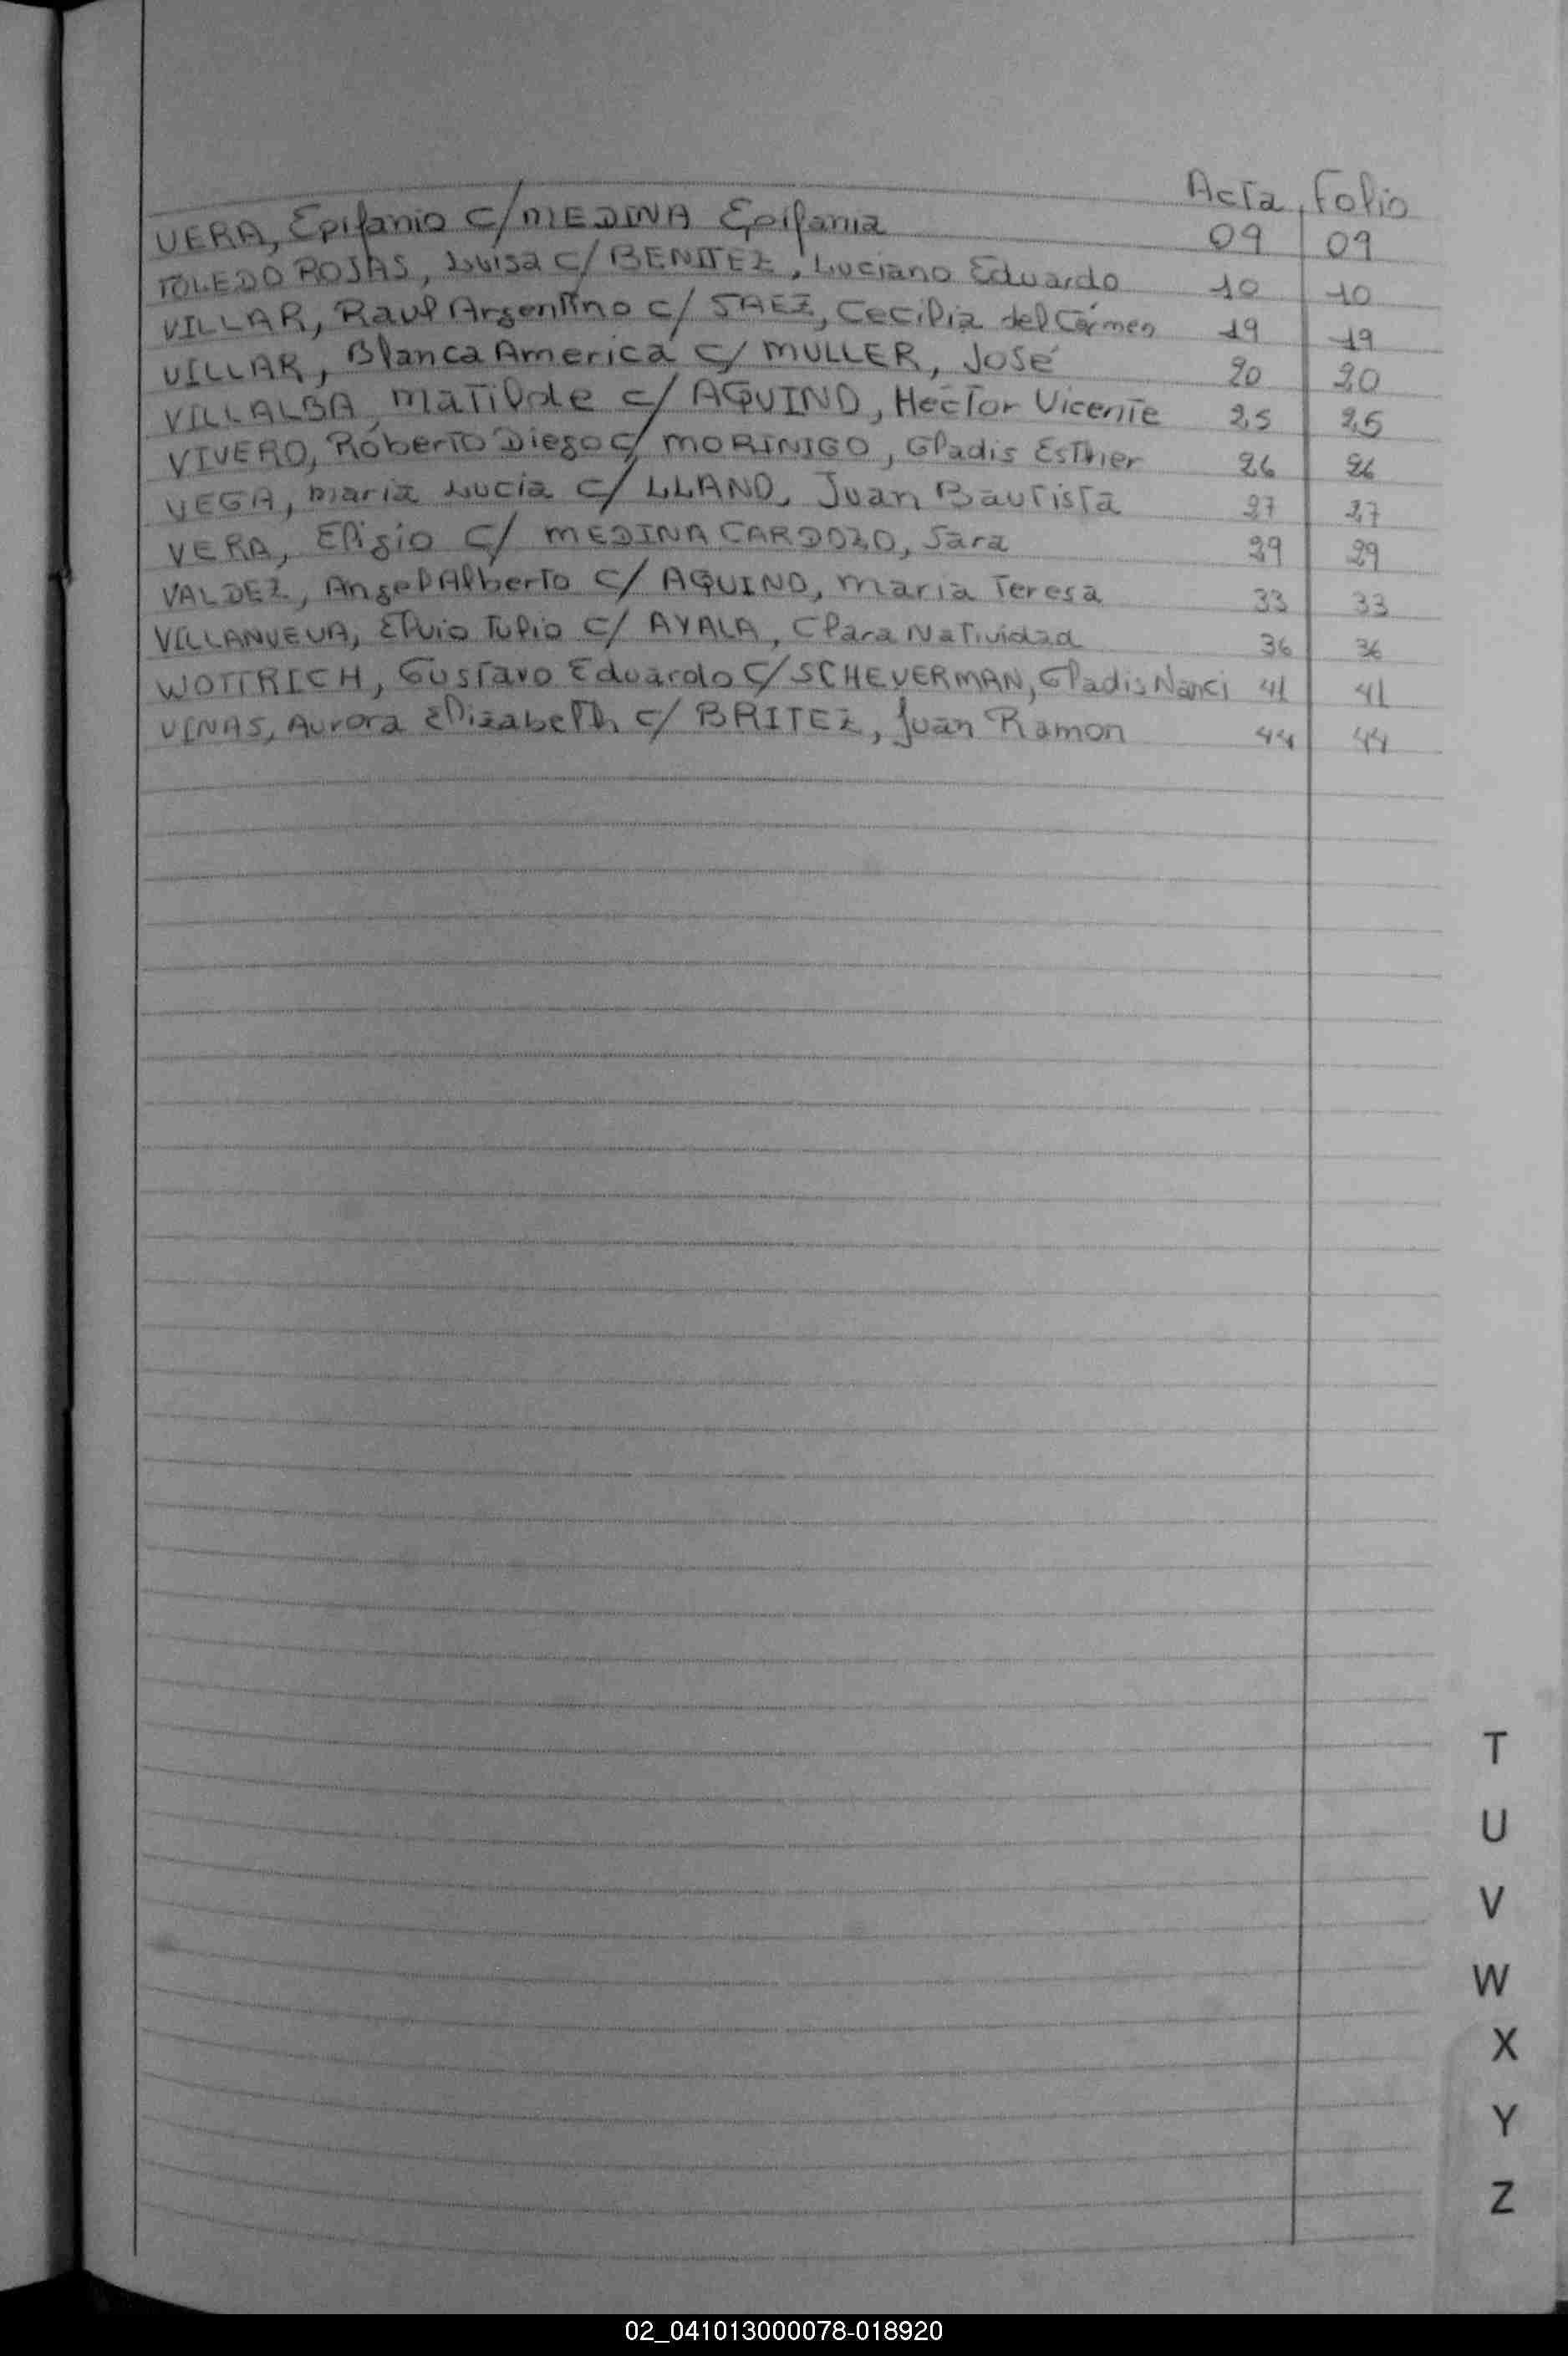 Acta Folio
VERA, Epifanio c/ MEDINA Epifania 09 09
TOLEDO ROJAS, Luisa c/ BENITEZ, Luciano Eduardo 10 10
VILLAR, Raul Argentino c/ SAEZ, Cecilia del Cármen 19 19
VILLAR, Blanca America c/ MULLER, José 20 20
VILLALBA, Matilde c/ AQUINO, Hector Vicente 25 25
VIVERO, Roberto Diego c/ MORINIGO, Gladis Esther 26 26
VEGA, Maria Lucia c/ LLANO, Juan Bautista 27 27
VERA, Eligio c/ MEDINA CARDOZO, Sara 29 29
VALDEZ, Angel Alberto c/ AQUINO, Maria Teresa 33 33
VILLANUEVA, Elvio Tulio c/ AYALA, Clara Natividad 36 36
WOTTRICH, Gustavo Eduardo c/ SCHEUERMAN, Gladis Nanci 41 41
VINAS, Aurora Elizabeth c/ BRITEZ, Juan Ramon 44 44
T
U
V
W
X
Y
Z
02_041013000078-018920